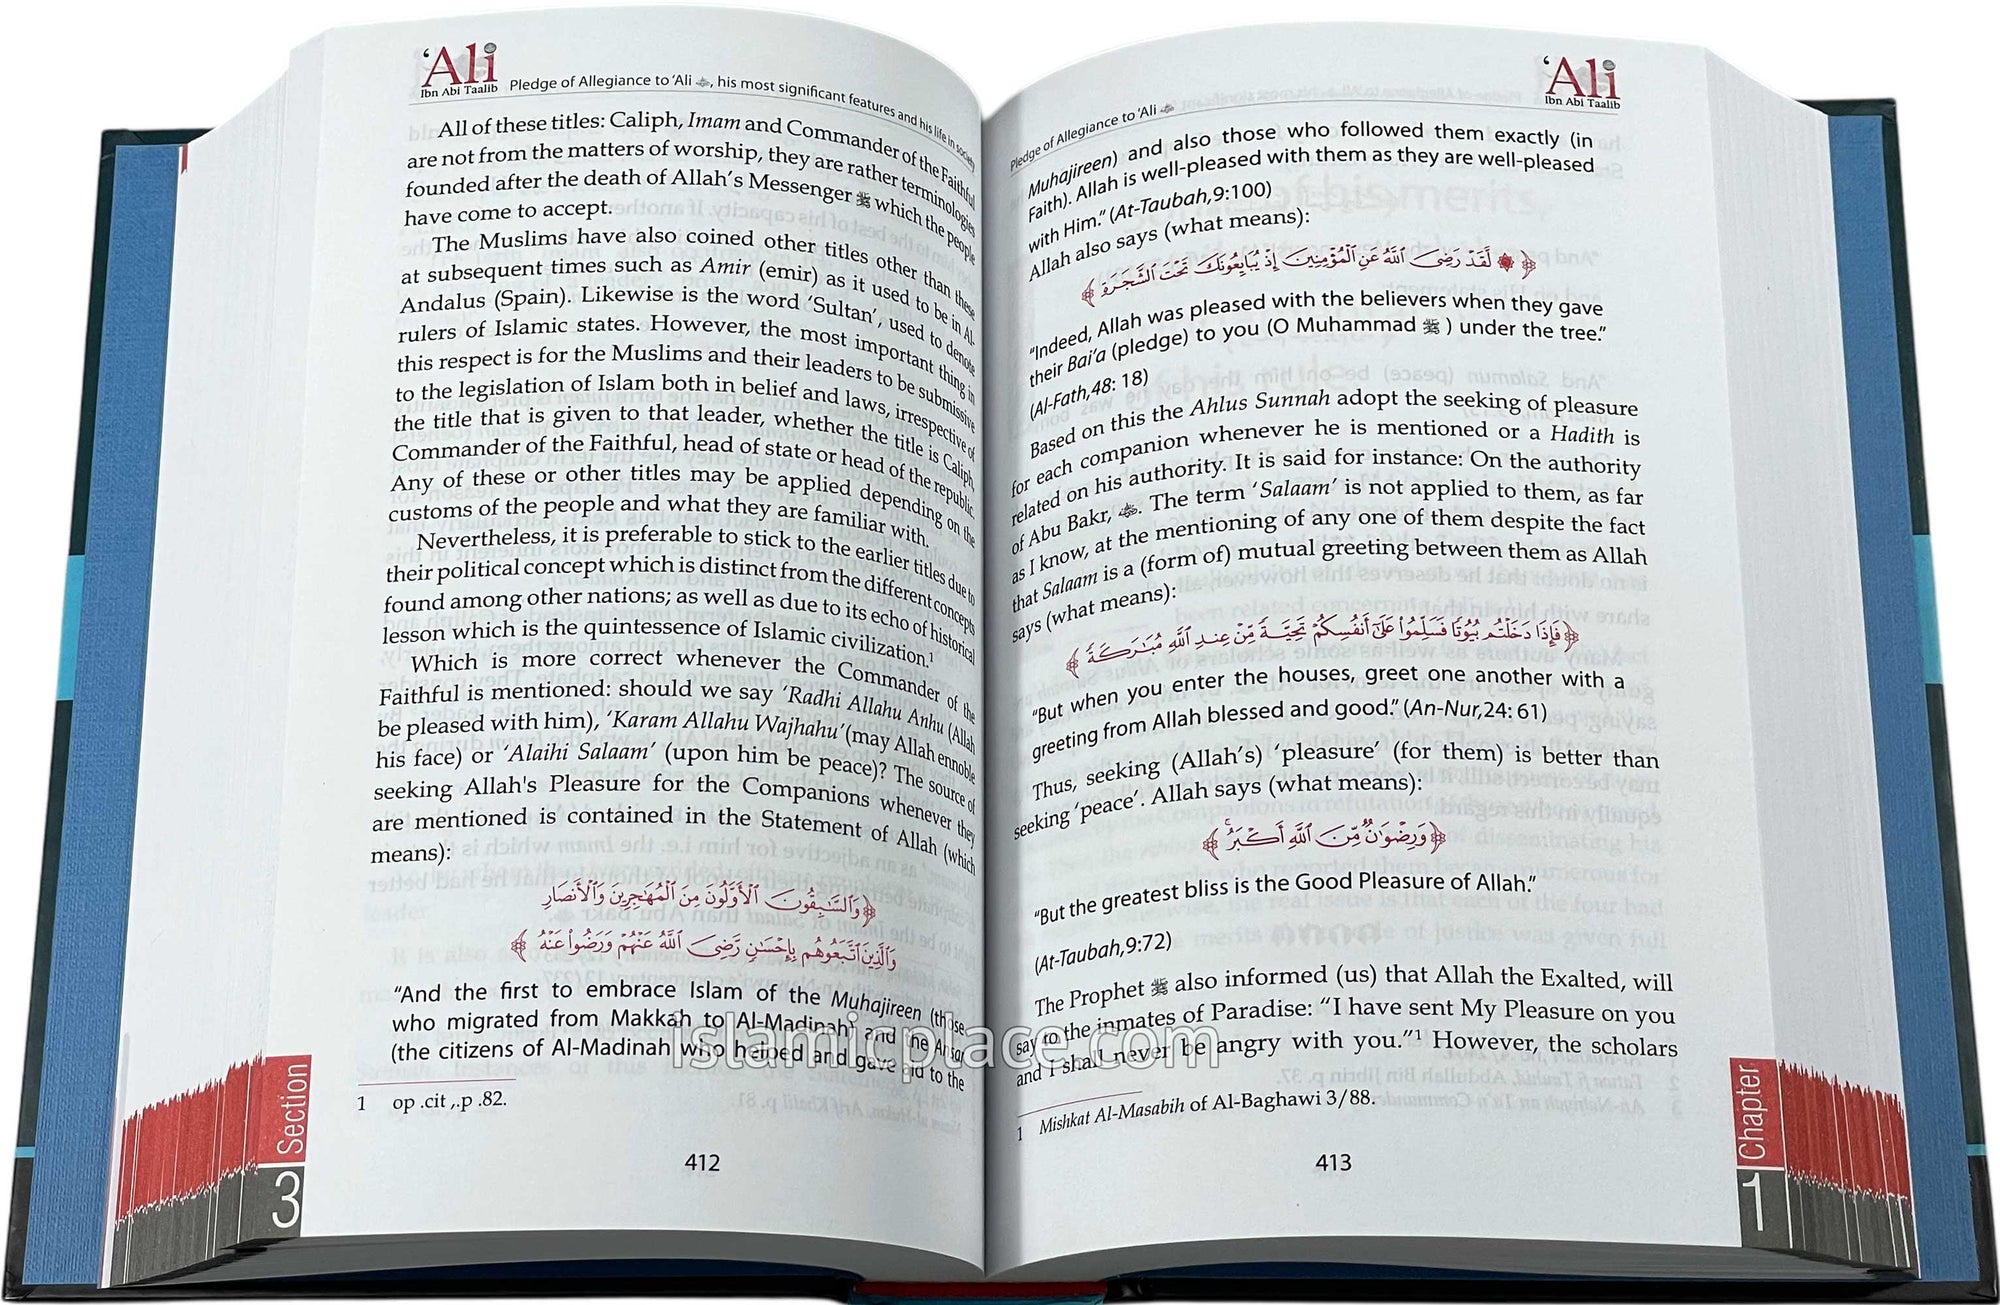 ‘Ali
Ibn Abi Taalib
Pledge of Allegiance to ‘Ali , his most significant features and his life in society
All of these titles: Caliph, Imam and Commander of the Faithful
are not from the matters of worship, they are rather terminologies
founded after the death of Allah’s Messenger ﷺ which the people
have come to accept.
The Muslims have also coined other titles other than these
at subsequent times such as Amir (emir) as it used to be in Al-
Andalus (Spain). Likewise is the word ‘Sultan’, used to denote
rulers of Islamic states. However, the most important thing in
this respect is for the Muslims and their leaders to be submissive
to the legislation of Islam both in belief and laws, irrespective of
the title that is given to that leader, whether the title is Caliph,
Commander of the Faithful, head of state or head of the republic.
Any of these or other titles may be applied depending on the
customs of the people and what they are familiar with.
Nevertheless, it is preferable to stick to the earlier titles due to
their political concept which is distinct from the different concepts
found among other nations; as well as due to its echo of historical
lesson which is the quintessence of Islamic civilization.¹
Which is more correct whenever the Commander of the
Faithful is mentioned: should we say ‘Radhi Allahu Anhu (Allah
be pleased with him), ‘Karam Allahu Wajhahu’(may Allah ennoble
his face) or ‘Alaihi Salaam’ (upon him be peace)? The source of
seeking Allah's Pleasure for the Companions whenever they
are mentioned is contained in the Statement of Allah (which
means):
﴿وَالسَّابِقُونَ الْأَوَّلُونَ مِنَ الْمُهَاجِرِينَ وَالْأَنصَارِ
وَالَّذِينَ اتَّبَعُوهُم بِإِحْسَانٍ رَّضِيَ اللَّهُ عَنْهُمْ وَرَضُوا عَنْهُ﴾
“And the first to embrace Islam of the Muhajireen (those
who migrated from Makkah to Al-Madinah) and the Ansar
(the citizens of Al-Madinah who helped and gave aid to the
1 op .cit ,.p .82.
412
Section
3
‘Ali
Ibn Abi Taalib
Pledge of Allegiance to ‘Ali
Muhajireen) and also those who followed them exactly (in
Faith). Allah is well-pleased with them as they are well-pleased
with Him.” (At-Taubah,9:100)
Allah also says (what means):
﴿۞ لَّقَدْ رَضِيَ اللَّهُ عَنِ الْمُؤْمِنِينَ إِذْ يُبَايِعُونَكَ تَحْتَ الشَّجَرَةِ﴾
“Indeed, Allah was pleased with the believers when they gave
their Bai’a (pledge) to you (O Muhammad ﷺ ) under the tree.”
(Al-Fath,48: 18)
Based on this the Ahlus Sunnah adopt the seeking of pleasure
for each companion whenever he is mentioned or a Hadith is
related on his authority. It is said for instance: On the authority
of Abu Bakr, . The term ‘Salaam’ is not applied to them, as far
as I know, at the mentioning of any one of them despite the fact
that Salaam is a (form of) mutual greeting between them as Allah
says (what means):
﴿فَإِذَا دَخَلْتُم بُيُوتًا فَسَلِّمُوا عَلَىٰ أَنفُسِكُمْ تَحِيَّةً مِّنْ عِندِ اللَّهِ مُبَارَكَةً﴾
“But when you enter the houses, greet one another with a
greeting from Allah blessed and good.” (An-Nur,24: 61)
Thus, seeking (Allah’s) ‘pleasure’ (for them) is better than
seeking ‘peace’. Allah says (what means):
﴿وَرِضْوَانٌ مِّنَ اللَّهِ أَكْبَرُ﴾
“But the greatest bliss is the Good Pleasure of Allah.”
(At-Taubah,9:72)
The Prophet ﷺ also informed (us) that Allah the Exalted, will
say to the inmates of Paradise: “I have sent My Pleasure on you
and I shall never be angry with you.”¹ However, the scholars
1 Mishkat Al-Masabih of Al-Baghawi 3/88.
413
Chapter
1
islamicplace.com